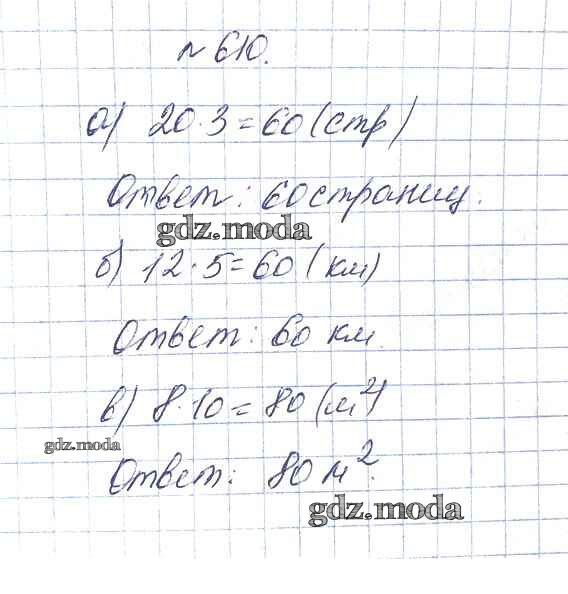 № 610.
а) 20·3=60 (стр)
Ответ: 60 страниц.
gdz.moda
б) 12·5=60 (км)
Ответ: 60 км.
в) 8·10=80 (м²)
gdz.moda
Ответ: 80 м².
gdz.moda